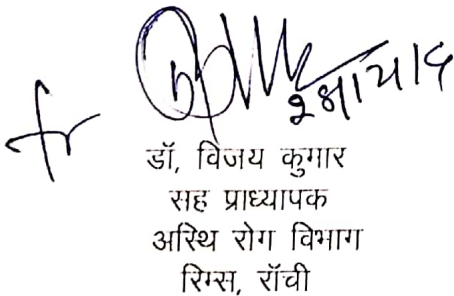 fr
डॉ, विजय कुमार
सह प्राध्यापक
अस्थि रोग विभाग
रिम्स, राँची